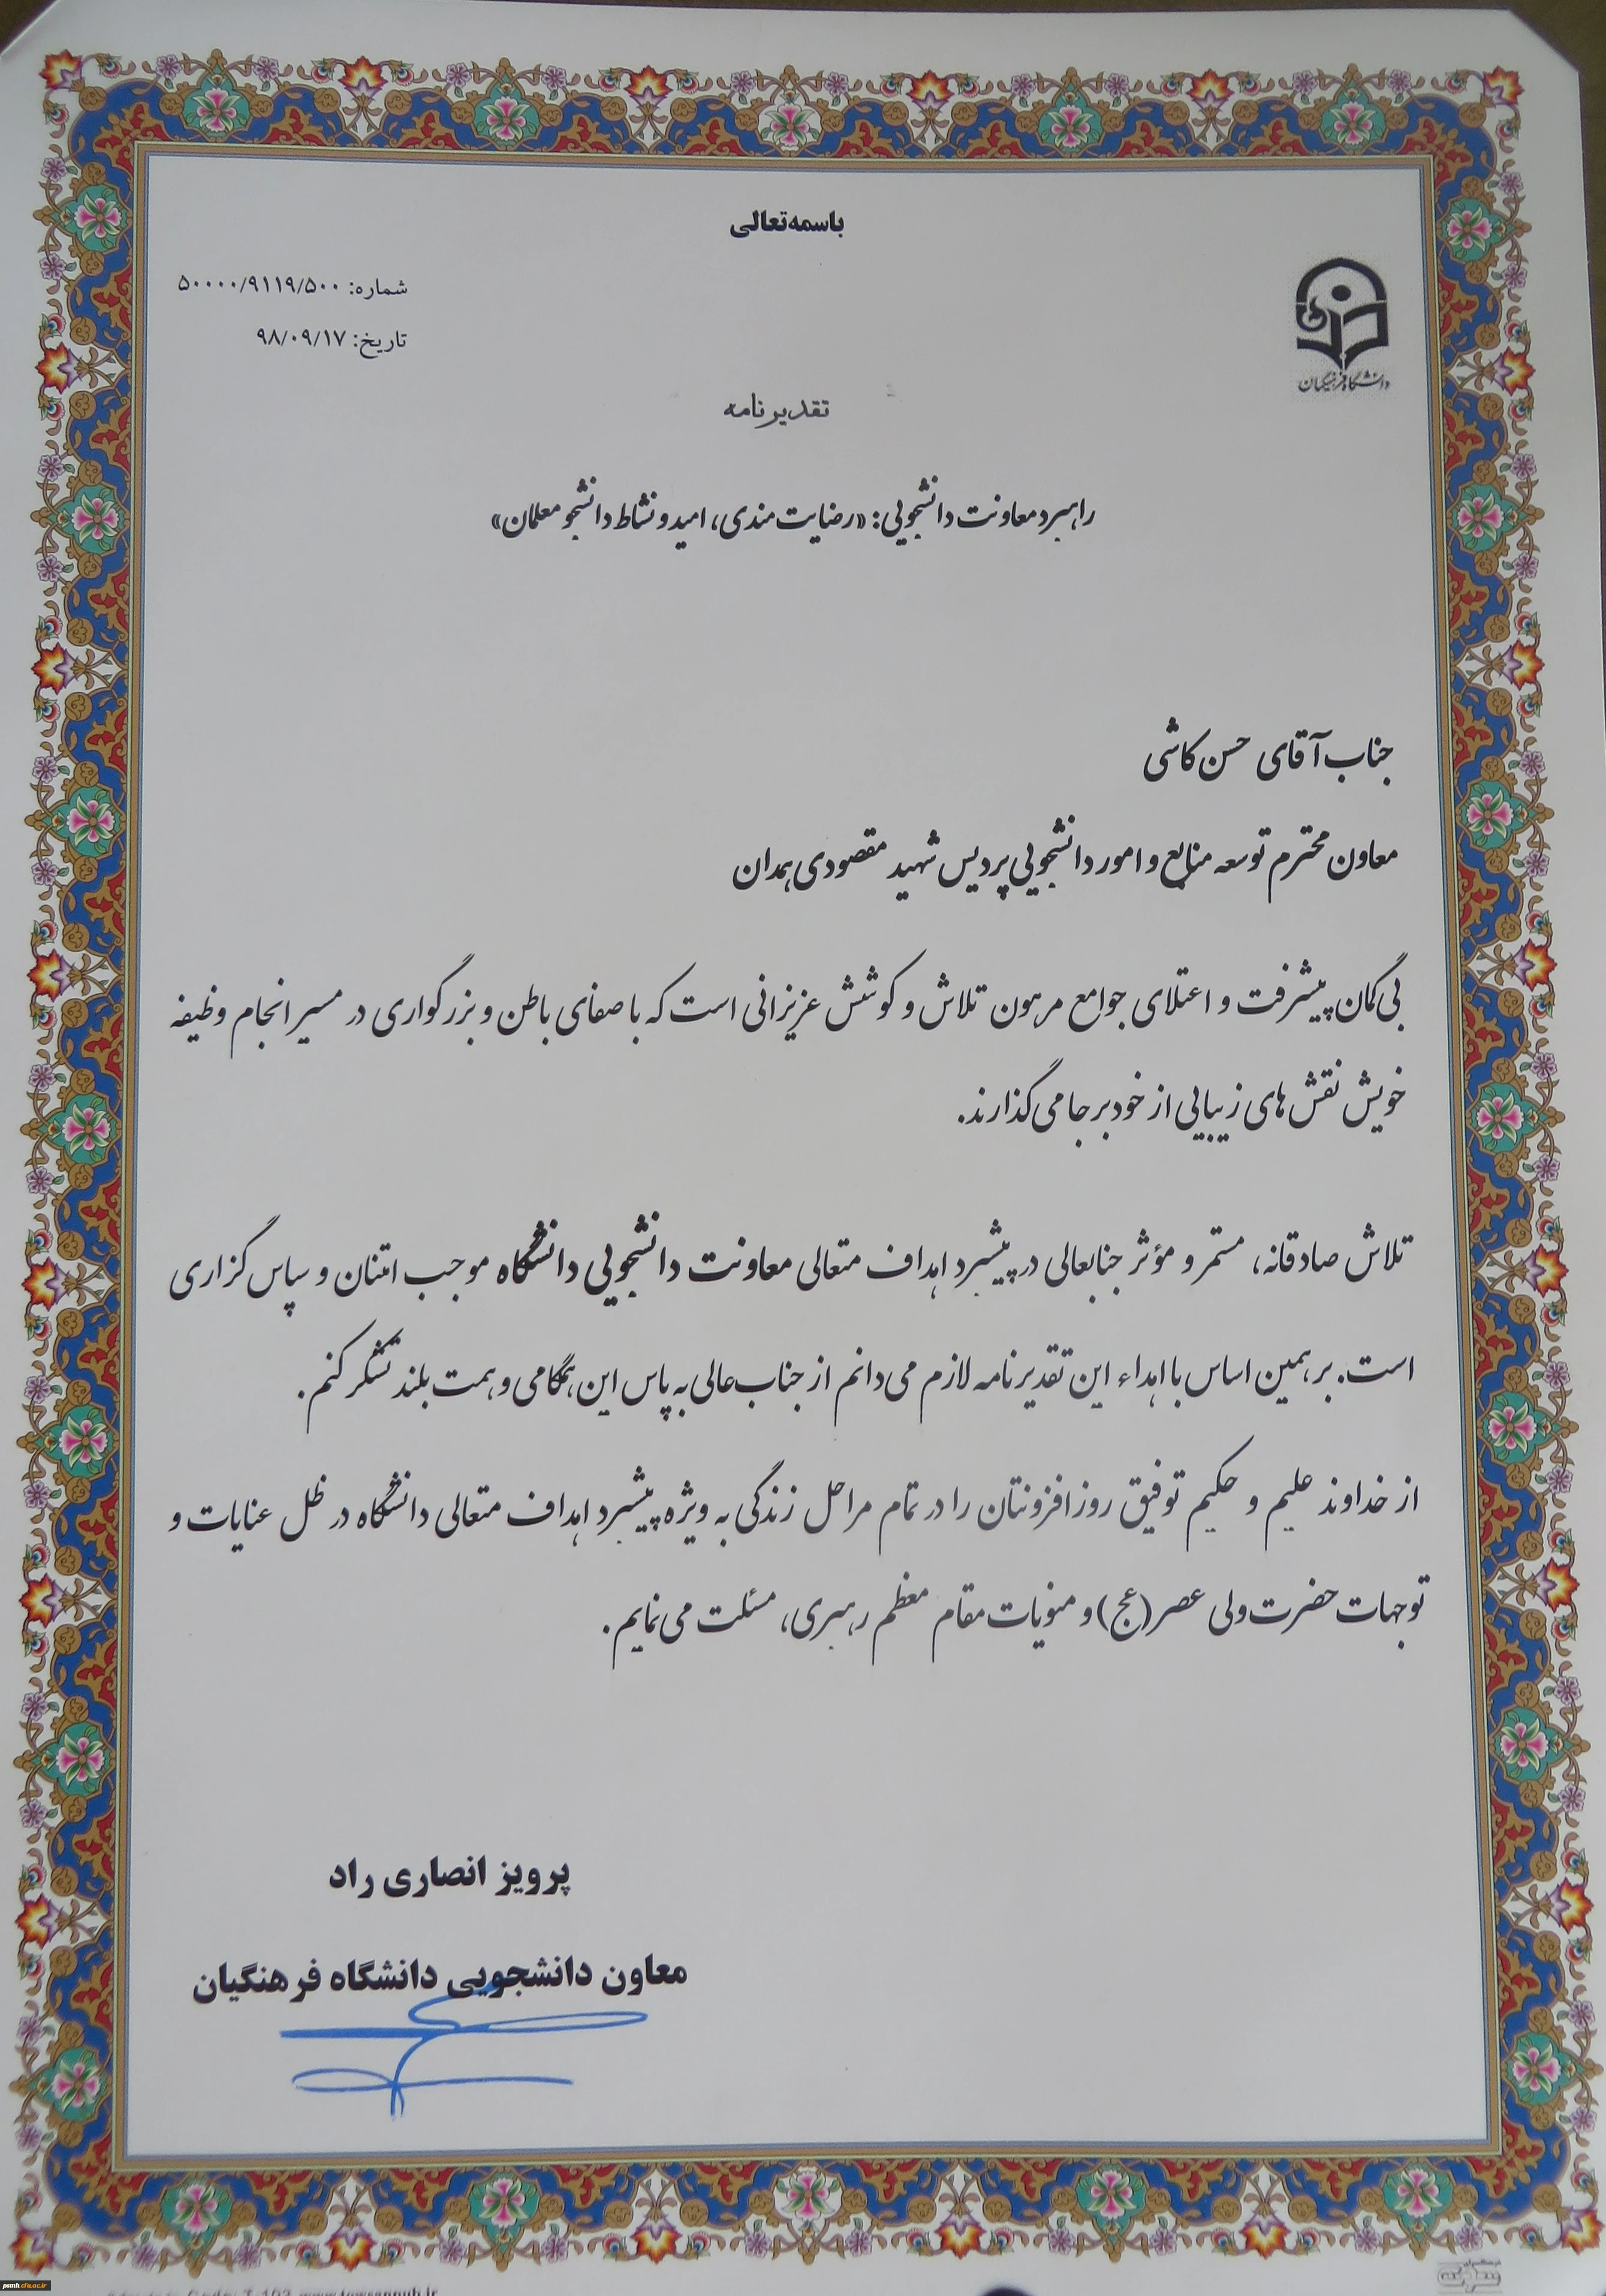 باسمه‌تعالی
شماره: ۵۰۰۰۰/۹۱۱۹/۵۰۰
تاریخ: ۹۸/۰۹/۱۷
دانشگاه فرهنگیان
تقدیرنامه
راهبرد معاونت دانشجویی: «رضایت مندی، امید و نشاط دانشجو معلمان»
جناب آقای حسن کاشی
معاون محترم توسعه منابع و امور دانشجویی پردیس شهید مقصودی همدان
بی گمان پیشرفت و اعتلای جوامع مرهون تلاش و کوشش عزیزانی است که با صفای باطن و بزرگواری در مسیر انجام وظیفه
خویش نقش های زیبایی از خود بر جا می گذارند.
تلاش صادقانه، مستمر و مؤثر جنابعالی در پیشبرد اهداف متعالی معاونت دانشجویی دانشگاه موجب امتنان و سپاس گزاری
است. بر همین اساس با اهداء این تقدیرنامه لازم می دانم از جناب عالی به پاس این همگامی و همت بلند تشکر کنم.
از خداوند علیم و حکیم توفیق روزافزونتان را در تمام مراحل زندگی به ویژه پیشبرد اهداف متعالی دانشگاه در ظل عنایات و
توجهات حضرت ولی عصر(عج) و منویات مقام معظم رهبری، مسئلت می نمایم.
پرویز انصاری راد
معاون دانشجویی دانشگاه فرهنگیان
psmh.cfu.ac.ir